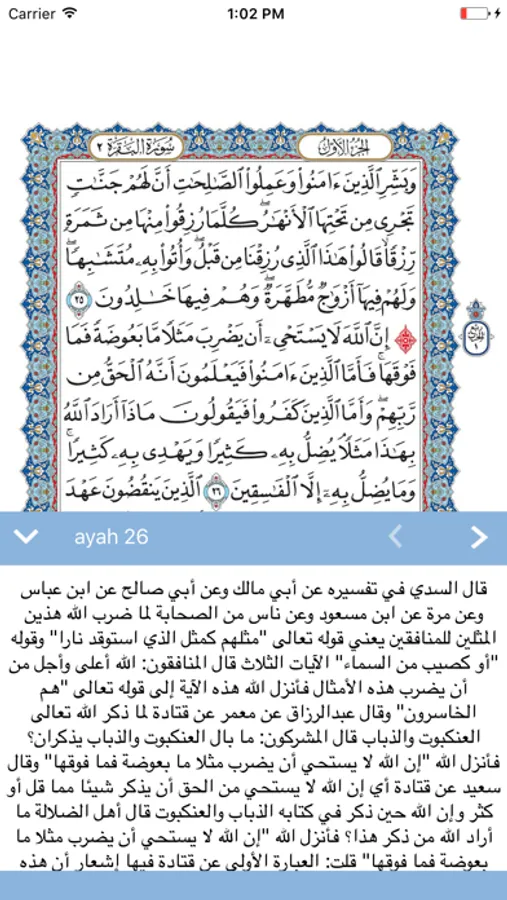 Carrier 1:02 PM
سورة البقرة ٢ الجزء الأول
وَبَشِّرِ ٱلَّذِينَ ءَامَنُوا۟ وَعَمِلُوا۟ ٱلصَّٰلِحَٰتِ أَنَّ لَهُمْ جَنَّٰتٍ
تَجْرِى مِن تَحْتِهَا ٱلْأَنْهَٰرُ ۖ كُلَّمَا رُزِقُوا۟ مِنْهَا مِن ثَمَرَةٍ
رِّزْقًا ۙ قَالُوا۟ هَٰذَا ٱلَّذِى رُزِقْنَا مِن قَبْلُ ۖ وَأُتُوا۟ بِهِۦ مُتَشَٰبِهًا ۖ
وَلَهُمْ فِيهَآ أَزْوَٰجٌ مُّطَهَّرَةٌ ۖ وَهُمْ فِيهَا خَٰلِدُونَ ٢٥
۞ إِنَّ ٱللَّهَ لَا يَسْتَحْىِۦٓ أَن يَضْرِبَ مَثَلًا مَّا بَعُوضَةً فَمَا
فَوْقَهَا ۚ فَأَمَّا ٱلَّذِينَ ءَامَنُوا۟ فَيَعْلَمُونَ أَنَّهُ ٱلْحَقُّ مِن
رَّبِّهِمْ ۖ وَأَمَّا ٱلَّذِينَ كَفَرُوا۟ فَيَقُولُونَ مَاذَآ أَرَادَ ٱللَّهُ
بِهَٰذَا مَثَلًا ۘ يُضِلُّ بِهِۦ كَثِيرًا وَيَهْدِى بِهِۦ كَثِيرًا ۚ
وَمَا يُضِلُّ بِهِۦٓ إِلَّا ٱلْفَٰسِقِينَ ٢٦ ٱلَّذِينَ يَنقُضُونَ عَهْدَ
ayah 26
قال السدي في تفسيره عن أبي مالك وعن أبي صالح عن ابن عباس
وعن مرة عن ابن مسعود وعن ناس من الصحابة لما ضرب الله هذين
المثلين للمنافقين يعني قوله تعالى "مثلهم كمثل الذي استوقد نارا" وقوله
"أو كصيب من السماء" الآيات الثلاث قال المنافقون: الله أعلى وأجل من
أن يضرب هذه الأمثال فأنزل الله هذه الآية إلى قوله تعالى "هم
الخاسرون" وقال عبدالرزاق عن معمر عن قتادة لما ذكر الله تعالى
العنكبوت والذباب قال المشركون: ما بال العنكبوت والذباب يذكران؟
فأنزل الله "إن الله لا يستحي أن يضرب مثلا ما بعوضة فما فوقها" وقال
سعيد عن قتادة أي إن الله لا يستحي من الحق أن يذكر شيئا مما قل أو
كثر وإن الله حين ذكر في كتابه الذباب والعنكبوت قال أهل الضلالة ما
أراد الله من ذكر هذا؟ فأنزل الله "إن الله لا يستحي أن يضرب مثلا ما
بعوضة فما فوقها" قلت: العبارة الأولى عن قتادة فيها إشعار أن هذه